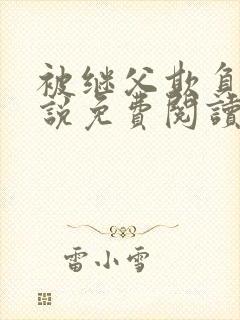 被继父欺負
說免費閱讀
雷小雪